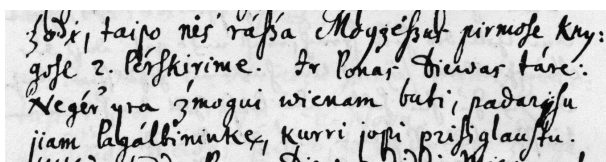 żodi, taipo nės rásza Moyzészus pirmose kny:
gose 2. Pérskirime. Ir Ponas Diewas táre:
Negér yra żmogui wienam buti, padarysu
jiam Pagálbininkę, kurri jopi prisiglaustu.